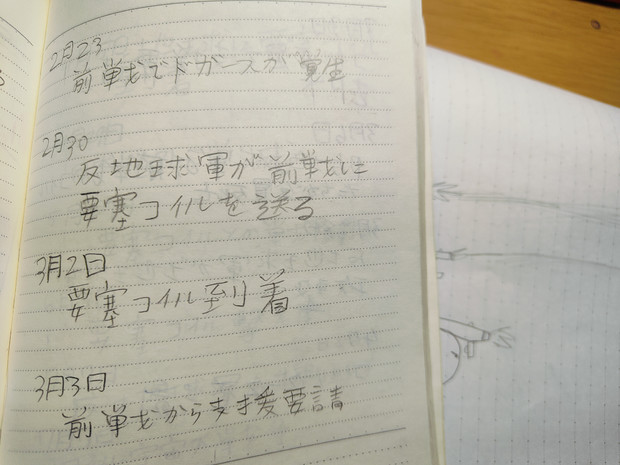 2月23
前戦でドガースが覚生
2月30
反地球軍が前戦に
要塞コイルを送る
3月2日
要塞コイル到着
3月3日
前戦から支援要請